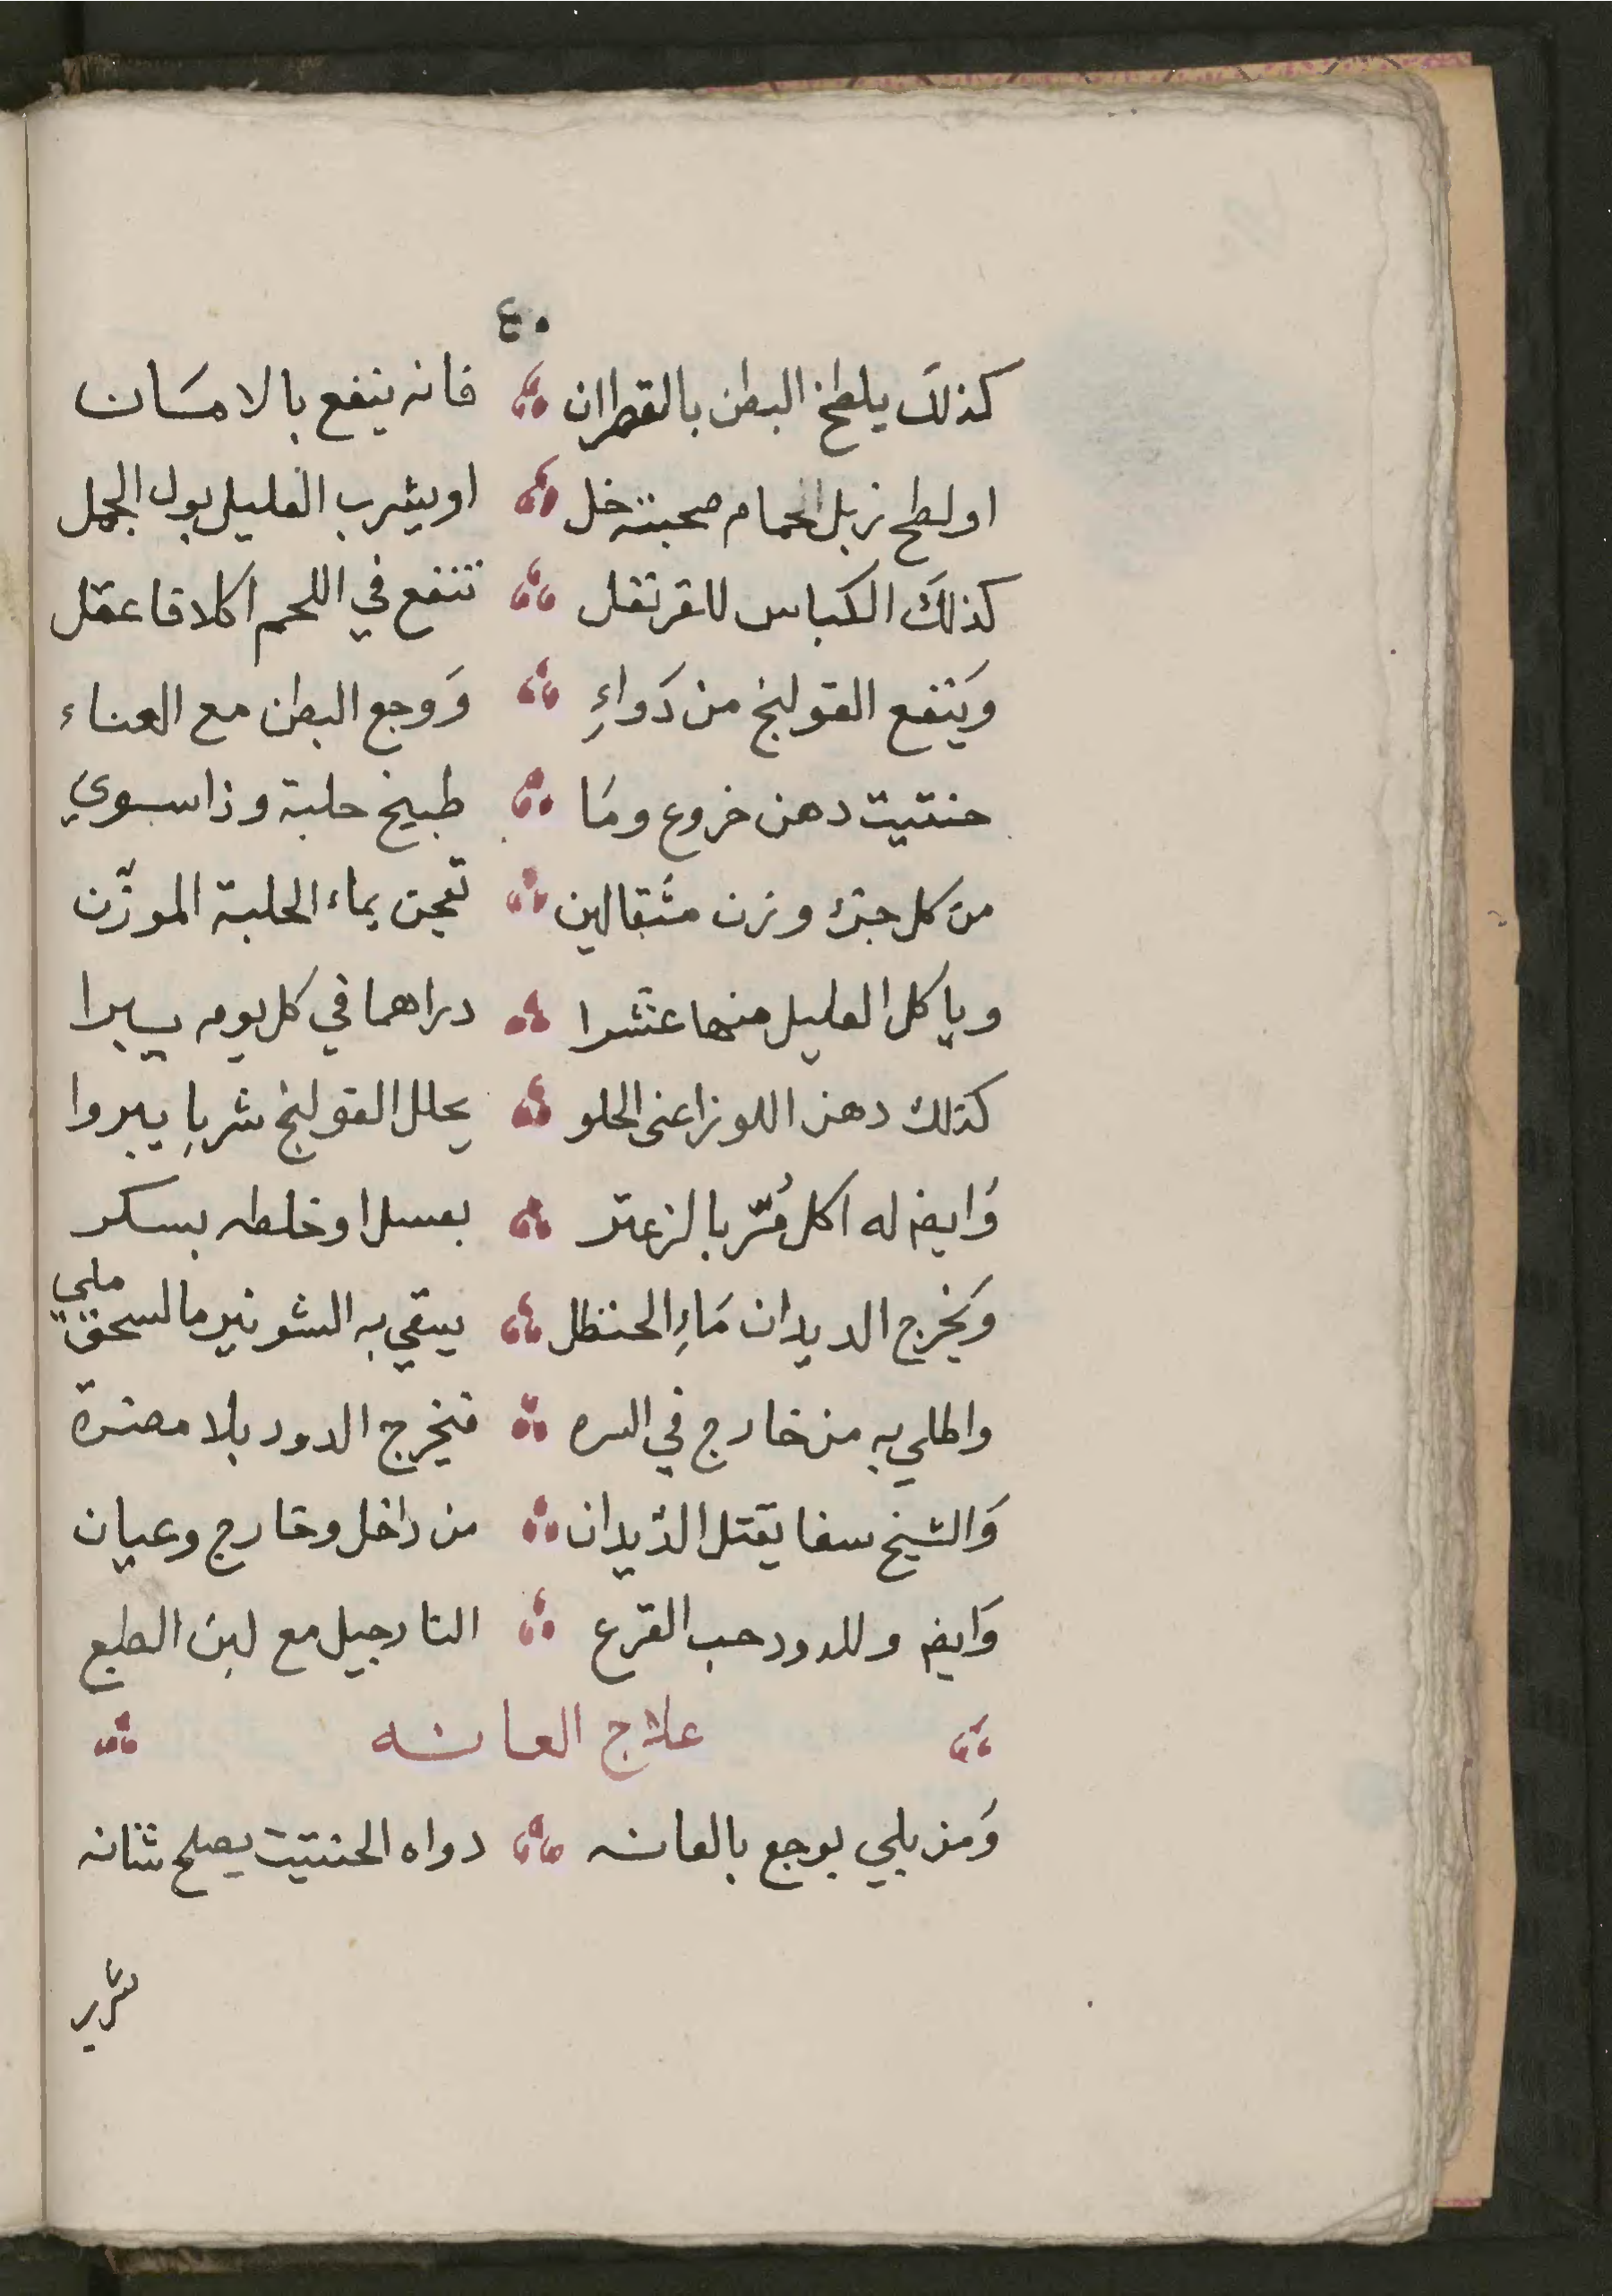 ٤٠
كذلَك يلطخ البطن بالقطران فانه ينفع بالامسَان
او لطح زبل الحمام صحبته خل او يشرب العليل بول الجمل
كذلَك الكباس للقرنفل تنفع في اللحم اكلا فاعقل
وَينفع القولنج من دَواءِ وَوجع البطن مع العناء
حنتيت دهن خروع ومَا طبيخ حلبة وذا سوي
من كل جزء وزن مثقالين تعجن بماء الحلبة الموزن
وياكل العليل منها عشرا دراهما في كل يوم يسيرا
كذلك دهن اللوز اعنى الحلو يحلل القولنج شربا يبروا
وَايضا له اكل مُرّ بالزعتر بعسل او خلطه بسكر
وَيخرج الديدان مَاءِ الحنظل يسقي به الشونيز مالسحق ملي
واطلي به من خارج في السره فيخرج الدود بلا مضرة
وَالشيخ سفا يقتل الدّيدان من داخل وخارج وعيان
وَايضا وللدود حب القرع النارجيل مع لبن الطبع
علاج العانه
وَمن بلي بوجع بالعانه دواه الحنتيت يصلح شانه